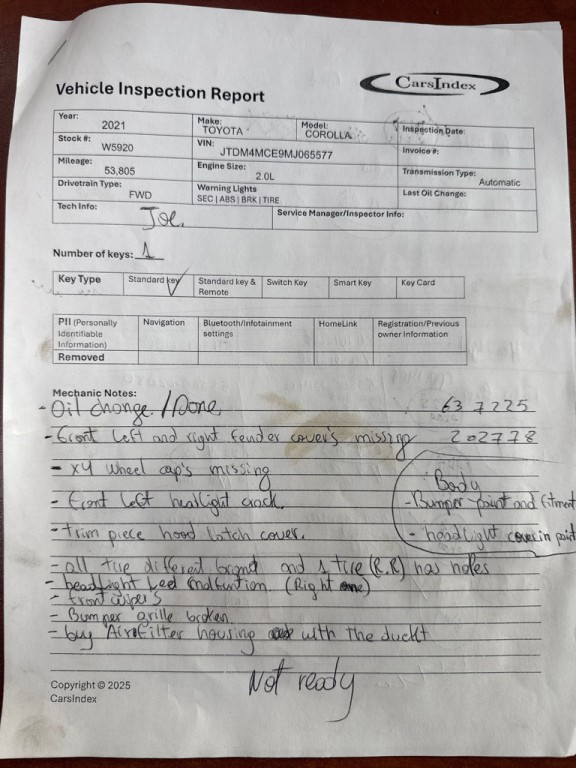 CarsIndex
Vehicle Inspection Report
Year: 2021 Make: TOYOTA Model: COROLLA Inspection Date:
Stock #: W5920 VIN: JTDM4MCE9MJ065577 Invoice #:
Mileage: 53,805 Engine Size: 2.0L Transmission Type: Automatic
Drivetrain Type: FWD Warning Lights SEC | ABS | BRK | TIRE Last Oil Change:
Tech Info: Joe. Service Manager/Inspector Info:
Number of keys: 1
Key Type Standard key ✓ Standard key & Remote Switch Key Smart Key Key Card
PII (Personally Identifiable Information) Navigation Bluetooth/Infotainment settings HomeLink Registration/Previous owner Information
Removed
Mechanic Notes:
- Oil change. / Done 637225
- Front left and right fender cover's missing 202778
- x4 wheel cap's missing
- Front left healight crack.
- trim piece hood latch cover.
Body
- Bumper paint and fitment
- headlight cover in paint
- all tire different brand and 1 tire (R.R) has holes
- headlight Led malfuntion. (Right one)
- Front wiper's
- Bumper grille broken.
- buy Air Filter housing with the duckt
Not ready
Copyright © 2025
CarsIndex